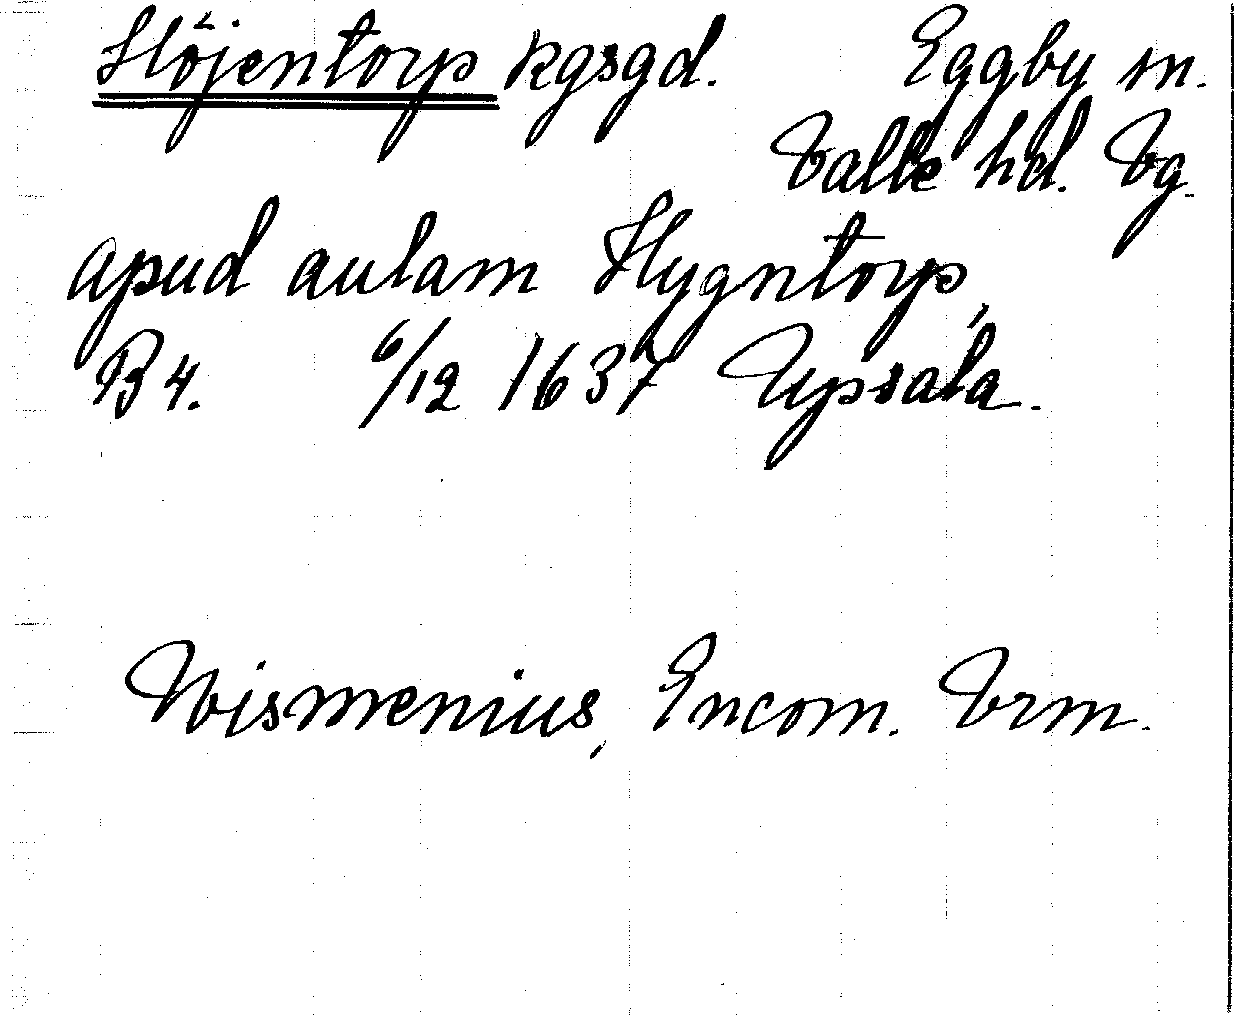 Höjentorp kgsgd. Eggby sn.
Valle hd. Vg.
apud aulam Hygntorp,
B 4. 6/12 1637 Upsala.
Wismenius, Encom. Vrm.